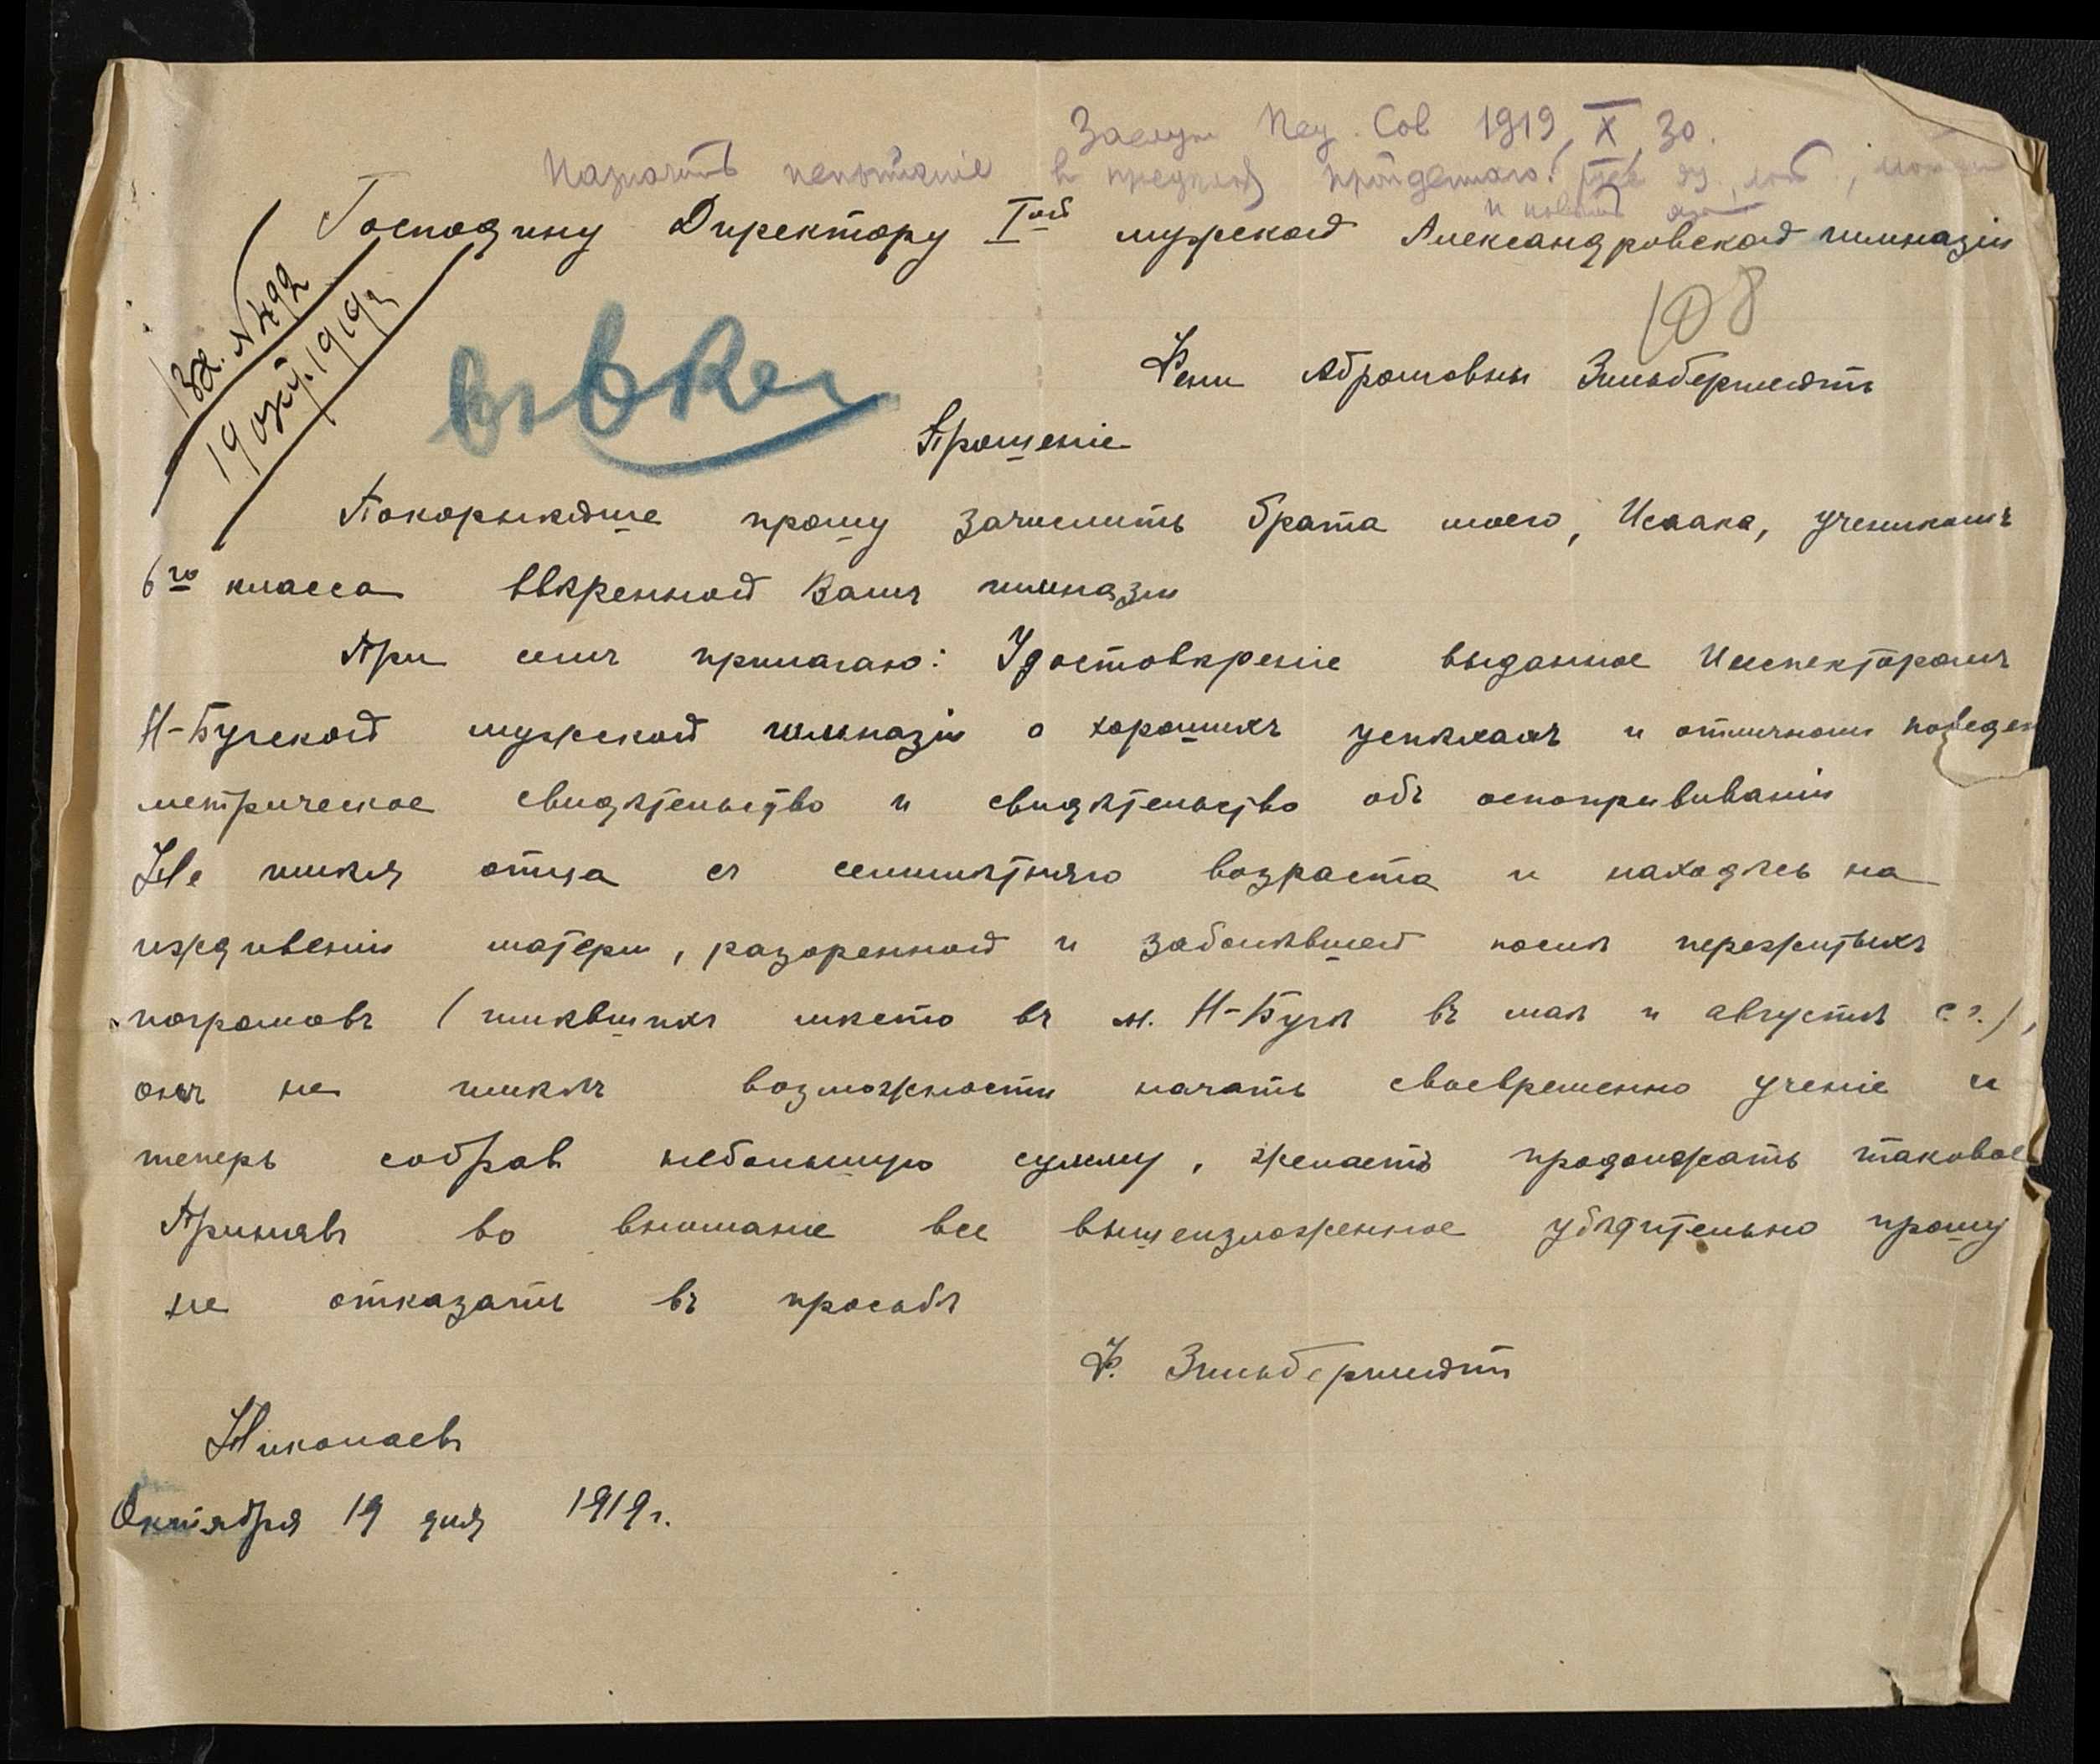 Заслуш Пед. Сов 1919, X 30.
Назначить испытание в предѣлах пройденнаго.
и новый
Господину Директору Iой мужской Александровской гимназіи
Вх. № 492
19 окт. 1919 г
108
Фени Абрамовны Зильбершмидтъ
Прошеніе
Покорнѣйше прошу зачислить брата моего, Исаака, ученикомъ
6го класса ввѣренной Вамъ гимназіи
При семъ прилагаю: Удостовѣреніе выданное Инспекторомъ
Н-Бугской мужской гимназіи о хорошихъ успѣхахъ и отличномъ поведен
метрическое свидѣтельство и свидѣтельство объ оспопрививаніи
Не имѣя отца съ семилѣтняго возраста и находясь на
иждивеніи матери, разоренной и заболѣвшей послѣ пережитыхъ
погромовъ (имѣвшихъ мѣсто въ м. Н-Бугѣ въ маѣ и августѣ с. г.),
онъ не имѣлъ возможности начать своевременно ученіе и
теперь собрав небольшую сумму, желаетъ продолжать таковое
Принявъ во вниманіе все вышеизложенное убѣдительно прошу
не отказать въ просьбѣ
Ф. Зильбершмидтъ
Николаевъ
Октября 19 дня 1919 г.